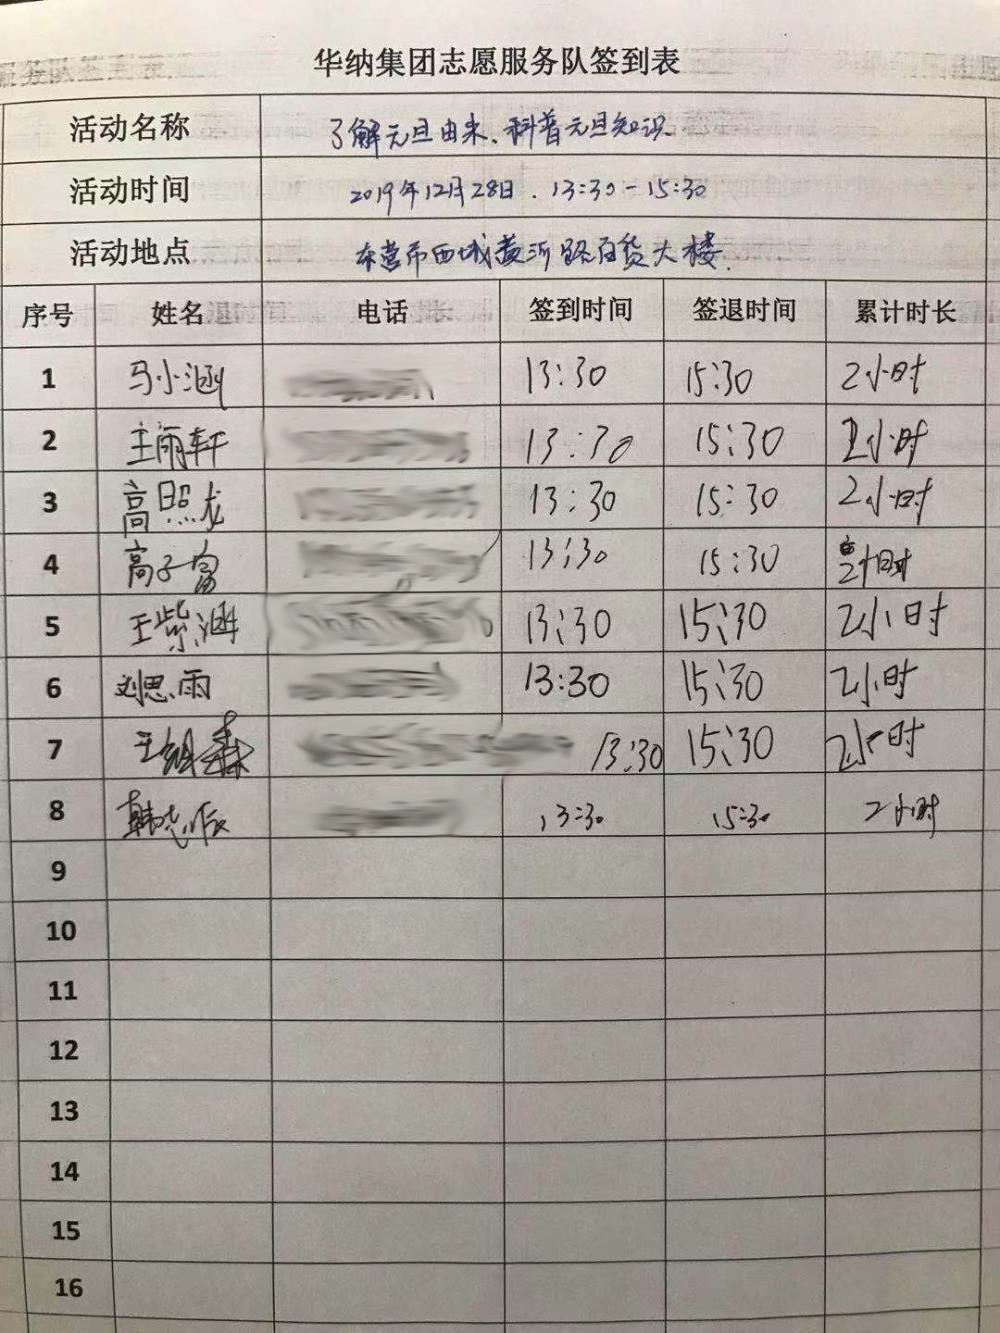 华纳集团志愿服务队签到表
活动名称 了解元旦由来、科普元旦知识.
活动时间 2019年12月28日. 13:30-15:30
活动地点 东营市西城黄河路百货大楼.
序号 姓名 电话 签到时间 签退时间 累计时长
1 马小涵 13:30 15:30 2小时
2 王雨轩 13:30 15:30 2小时
3 高照龙 13:30 15:30 2小时
4 高子富 13:30 15:30 2小时
5 王紫涵 13:30 15:30 2小时
6 刘思雨 13:30 15:30 2小时
7 王 13:30 15:30 2小时
8 韩 13:30 15:30 2小时
9
10
11
12
13
14
15
16